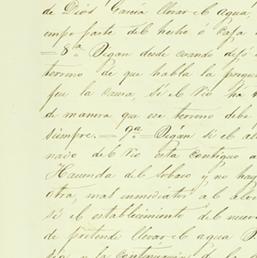 de Dios García llevar el agua,
empo parte del hecho ó cafa
= 8ª. Digan desde cuando dejó
terreno de que habla la pregun
fue la causa, si el rio ha
de manera que ese terreno debe
siempre. = 9ª. Digan si el al
nado del rio esta contiguo a
Hacienda del Lobaco y no hay
otra, mas inmediata al alo
si el establecimiento del nuev
de pretende llevar el agua
la continuacion de la